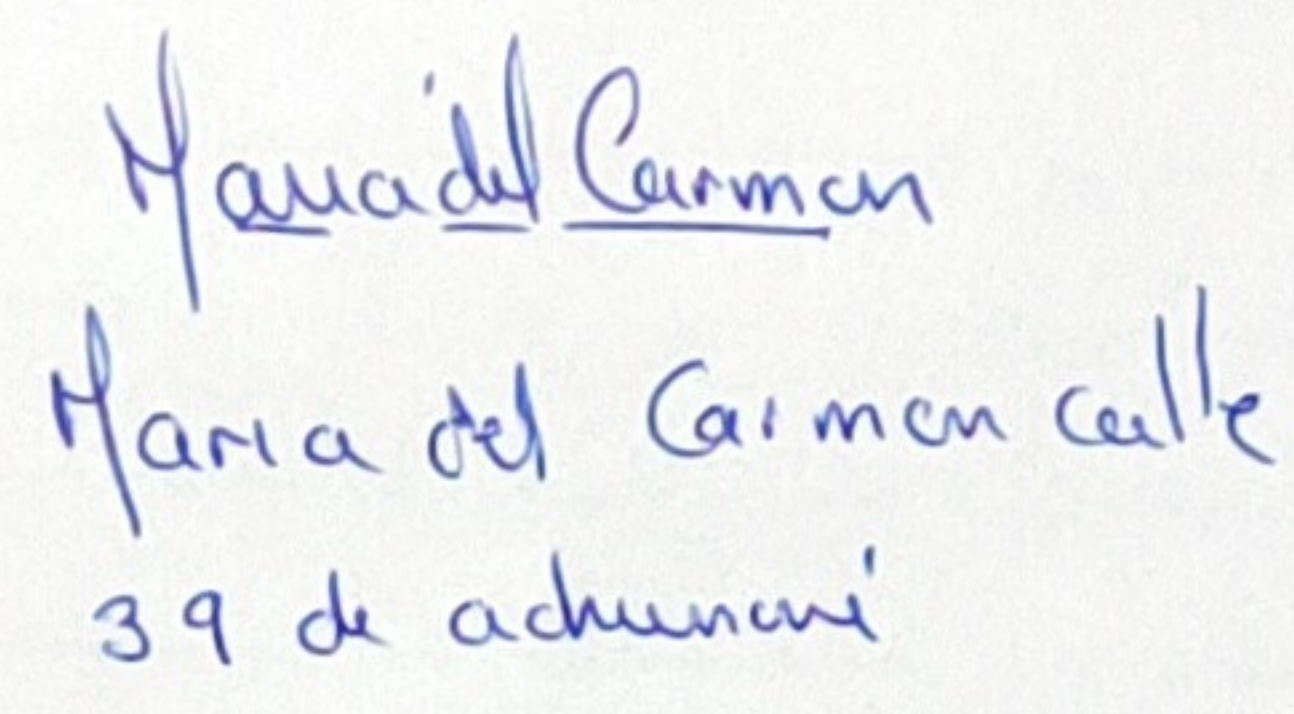 María del Carmen
Maria del Carmen calle
39 de achumani